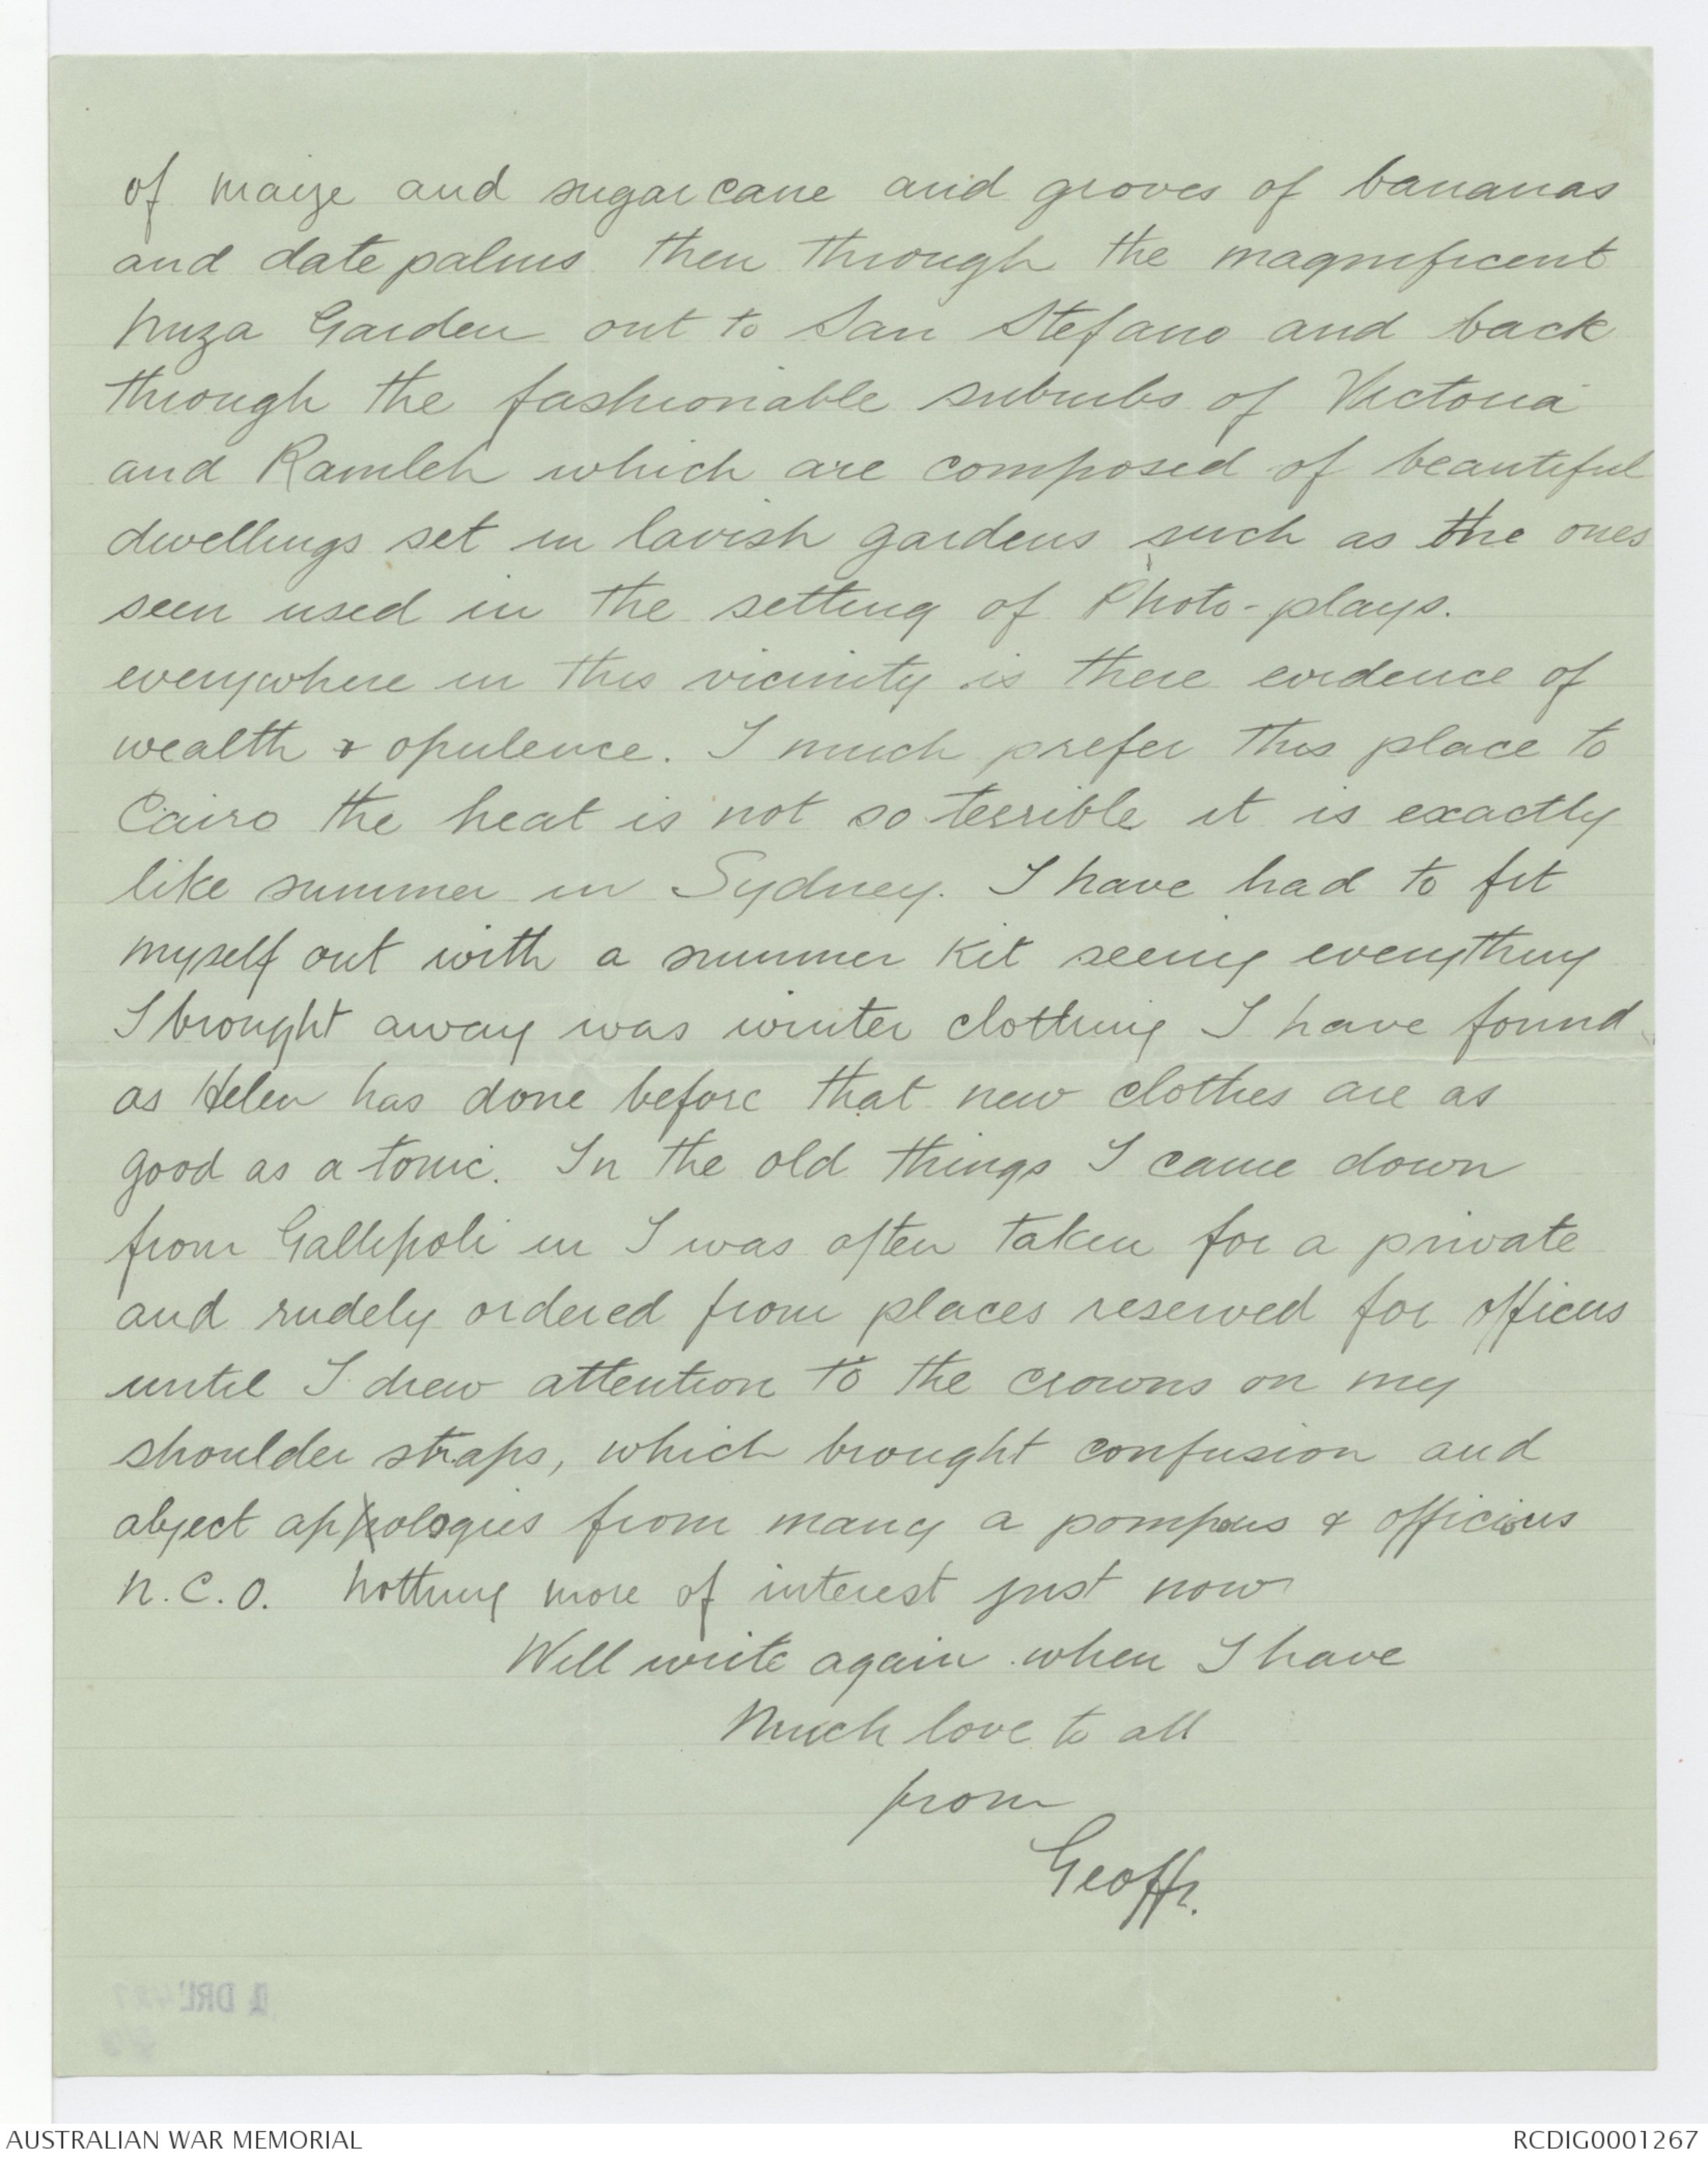 of maize and sugar cane and groves of bananas
and date palms then through the magnificent
Nuza Garden out to San Stefano and back
through the fashionable suburbs of Victoria
and Ramleh which are composed of beautiful
dwellings set in lavish gardens such as the ones
seen used in the setting of Photo-plays.
everywhere in this vicinity is there evidence of
wealth & opulence. I much prefer this place to
Cairo the heat is not so terrible it is exactly
like summer in Sydney. I have had to fit
myself out with a summer kit seeing everything
I brought away was winter clothing I have found
as Helen has done before that new clothes are as
good as a tonic. In the old things I came down
from Gallipoli in I was often taken for a private
and rudely ordered from places reserved for officers
until I drew attention to the crowns on my
shoulder straps, which brought confusion and
abject apologies from many a pompous & officious
N.C.O. Nothing more of interest just now
Will write again when I have
Much love to all
from
Geoff.
1 DRL
AUSTRALIAN WAR MEMORIAL
RCDIG0001267